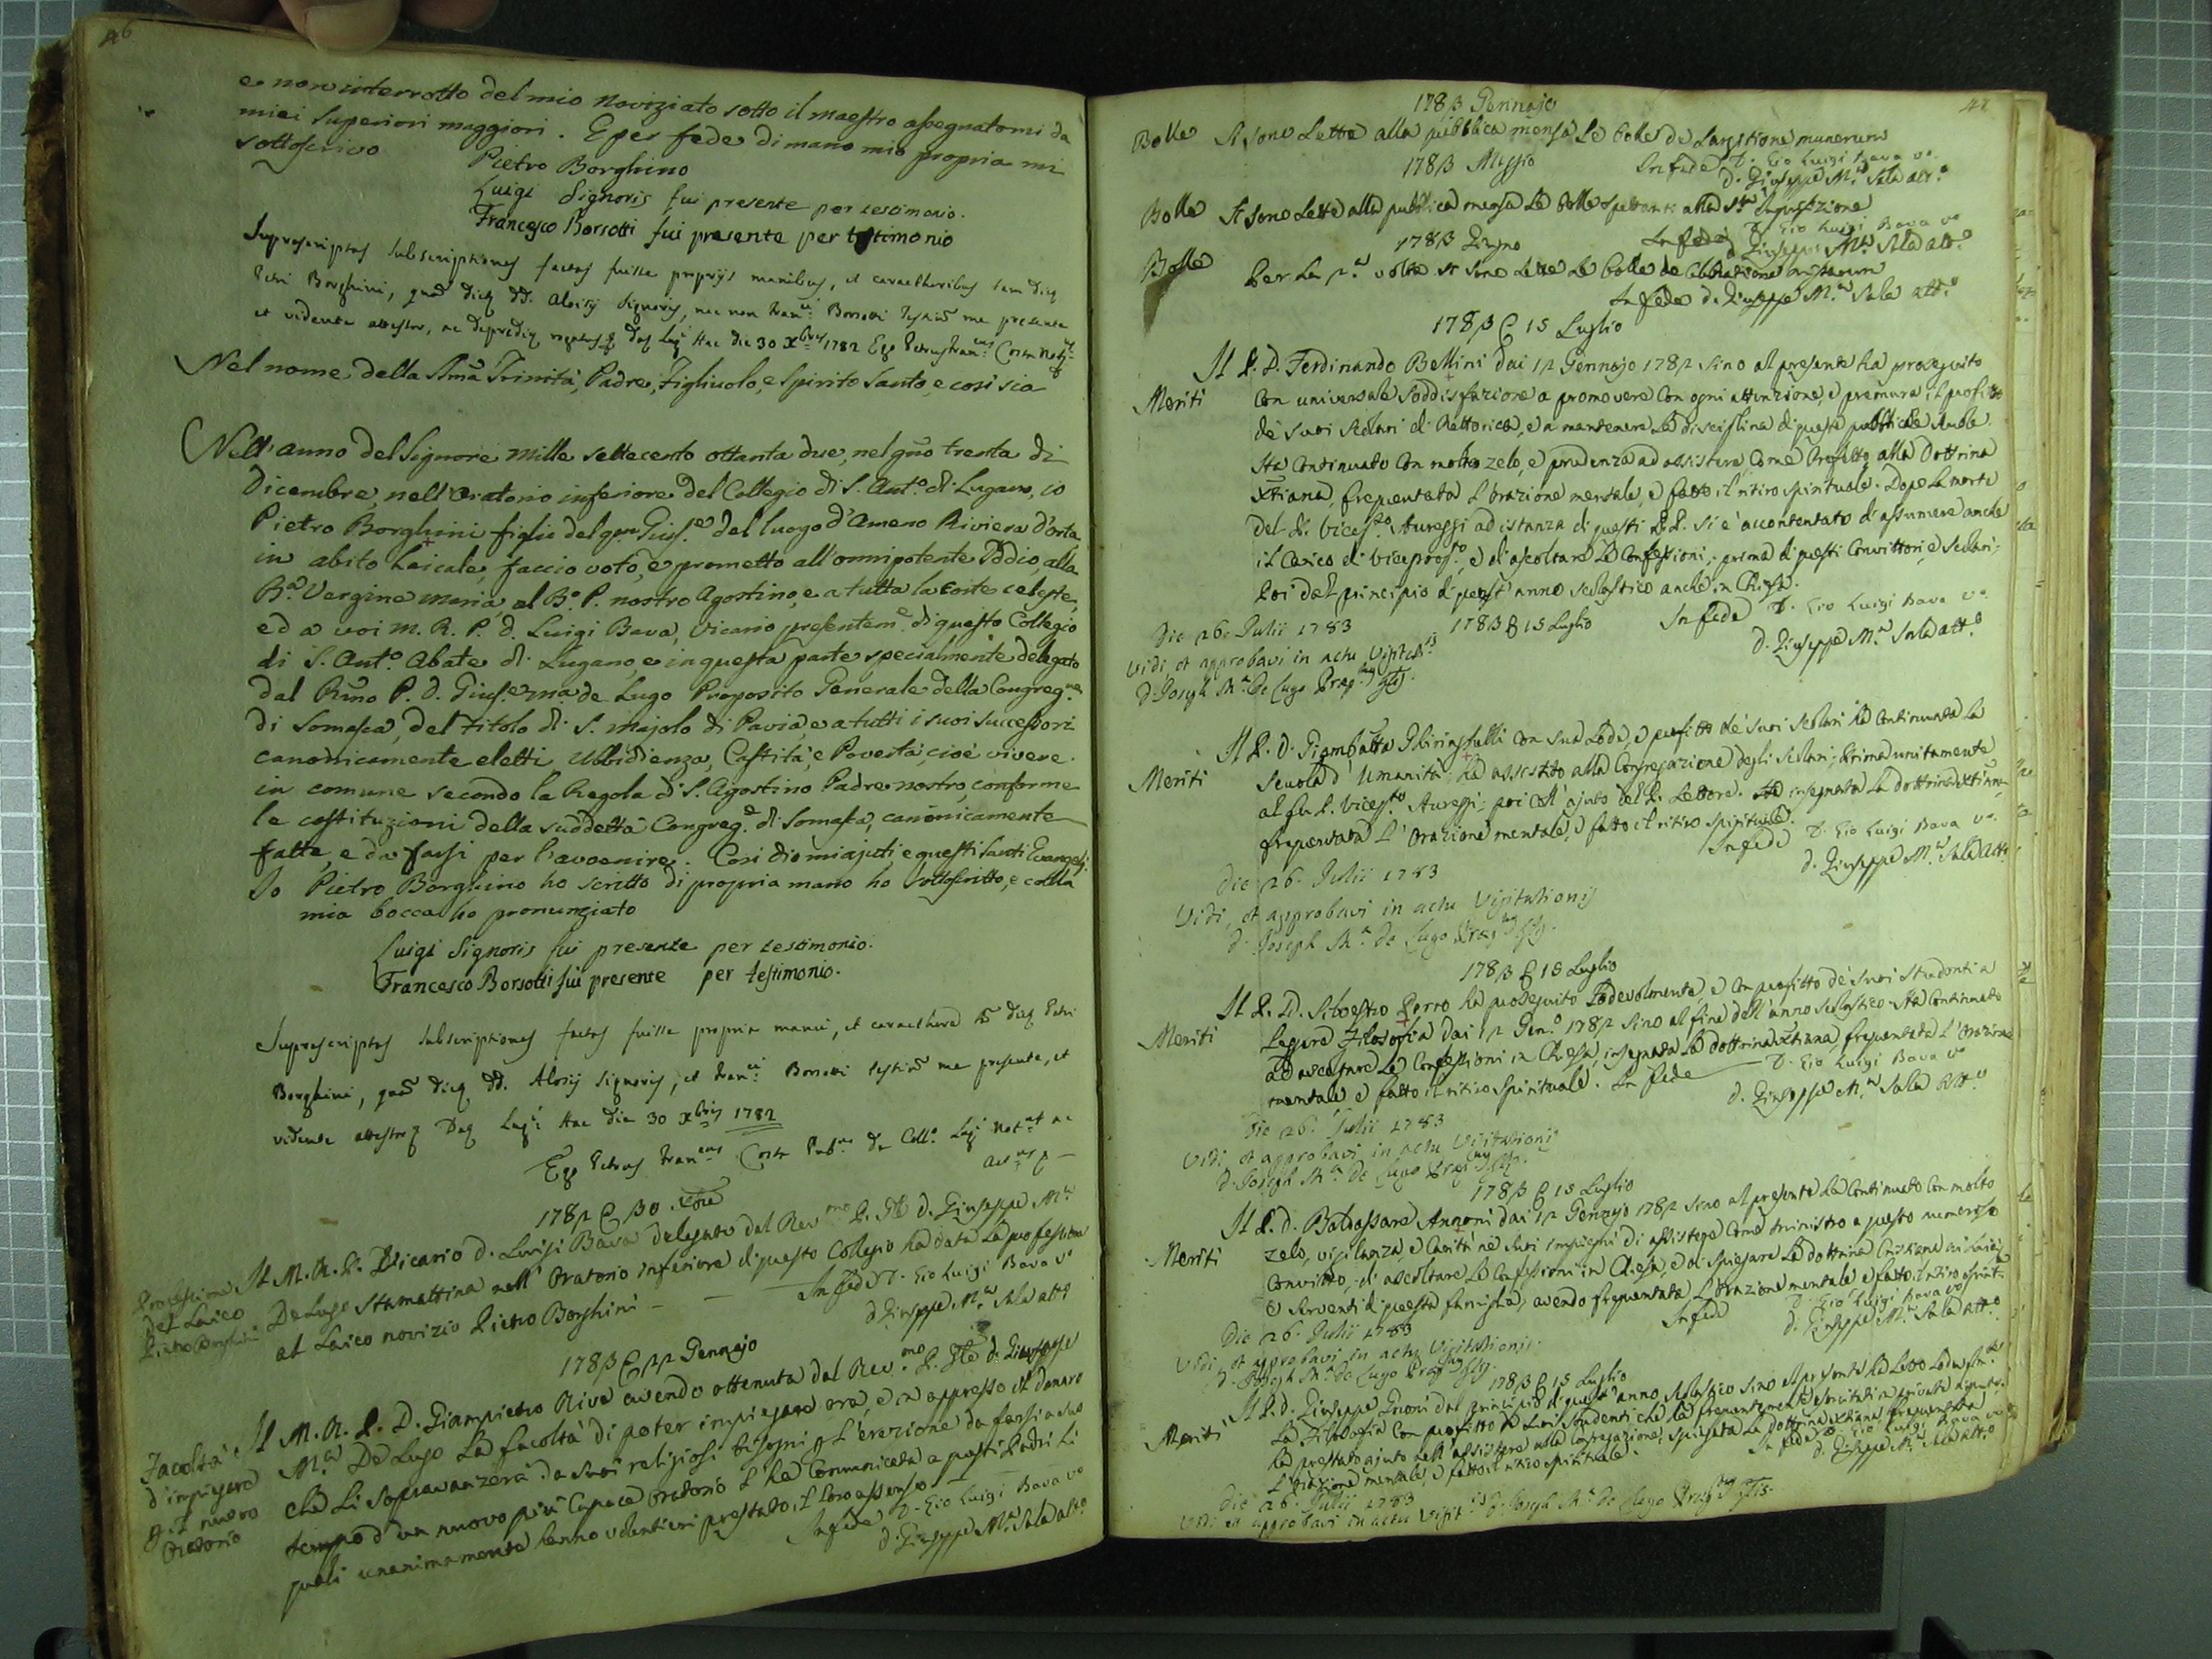 46
e non interrotto del mio noviziato sotto il maestro assegnatomi da
miei superiori maggiori. E per fede di mano mia propria mi
sottoscrivo
Pietro Borghino
Luigi Signoris fui presente per testimonio.
Francesco Borsotti fui presente per testimonio
Suprascriptas subscriptiones factas fuisse proprijs manibus, et caracteribus
Petri Borghini, DD. Aloisij Signoris, nec non Borsotti me presente
et vidente attestor, hac die 30 Xbris 1782 Ego Petrus Costa
Nel nome della SSma Trinità, Padre, Figliuolo, e Spirito Santo, e così sia
Nell' anno del Signore mille settecento ottanta due, nel gño trenta di
Dicembre, nell' Oratorio inferiore del Collegio di S. Ant.o di Lugano, io
Pietro Borghini figlio del qm Gius.e del luogo d'Ameno Riviera d'Orta
in abito laicale, faccio voto, e prometto all' onnipotente Iddio, alla
B.a Vergine Maria, al B.o P. nostro Agostino, e a tutta la corte celeste,
ed a voi M. R. P. D. Luigi Bava, Vicario presentem.e di questo Collegio
di S. Ant.o Abate di Lugano, e in questa parte specialmente delegato
dal Rm̃o P. D. Gius.e Ma de Lugo Preposito Generale della Congreg.ne
di Somasca, del titolo di S. Majolo di Pavia, e a tutti i suoi successori
canonicamente eletti Ubbidienza, Castità, e Povertà, cioè vivere
in comune secondo la Regola di S. Agostino Padre nostro, conforme
le costituzioni della suddetta Congreg.e di Somasca, canonicamente
fatte, e da farsi per l'avvenire. Così Dio mi ajuti, e questi Santi Evangelj.
Io Pietro Borghino ho scritto di propria mano ho sottoscritto, e colla
mia bocca ho pronunziato
Luigi Signoris fui presente per testimonio.
Francesco Borsotti fui presente per testimonio.
Suprascriptas subscriptiones factas fuisse propria manu, et caractere Petri
Borghini, DD. Aloisij Signoris, et Borsotti me presente, et
vidente attestor Hac die 30 Xbris 1782
Ego Petrus Costa de Coll.o
1782 30
Professione del Laico Pietro Borghini
Il M. R. P. Vicario D. Luigi Bava delegato dal Rev.mo P. Gle D. Giuseppe M.a
De Lugo stamattina nell' Oratorio inferiore di questo Collegio ha data la professione
al Laico novizio Pietro Borghini — In fede D. Gio Luigi Bava Vo
D. Giuseppe M.a Sala att.o
1783 22 Gennajo
Facoltà d'impiegare p. il nuovo Oratorio
Il M. R. P. D. Giampietro Riva avendo ottenuta dal Rev.mo P. Gle D. Giuseppe
M.a De Lugo la facoltà di poter impiegare ora, e in appresso il danaro
che li sopravanzerà da suoi religiosi bisogni p. l'erezione da farsi a suo
tempo d'un nuovo più capace Oratorio l'ha comunicata a questi Padri li
quali unanimamente hanno volentieri prestato il loro assenso
In fede D. Gio Luigi Bava Vo
D. Giuseppe M.a Sala att.o
47
1783 Gennajo
Bolle Si sono Lette alla pubblica mensa le bolle de Largitione munerum
In fede D. Gio Luigi Bava Vo
D. Giuseppe M.a Sala att.o
1783 Maggio
Bolle Si sono Lette alla pubblica mensa le Bolle spettanti alla S.ta Inquisizione
In fede D. Gio Luigi Bava Vo
D. Giuseppe M.a Sala att.o
1783 Giugno
Bolle Per la 2.a volta si sono Lette le bolle de Celebratione missarum
In fede D. Giuseppe M.a Sala att.o
1783 15 Luglio
Meriti
Il P. D. Ferdinando Bellini dai 12 Gennajo 1782 sino al presente ha proseguito
con universale soddisfazione a promovere con ogni attenzione, e premura il profitto
de' suoi scolari di Rettorica, e a mantenere la disciplina di queste pubbliche scuole.
Ha continuato con molto zelo, e prudenza ad assistere come Prefetto alla Dottrina
Xtiana, frequentata l'orazione mentale, e fatto il ritiro spirituale. Dopo la morte
del P. Vicep.to Aureggi ad istanza di questi P.P. si è accontentato d'assumere anche
il carico di Viceprep.to, e di ascoltare le Confessioni; prima di questi Convittori, e scolari;
poi dal principio di quest' anno scolastico anche in Chiesa.
In fede D. Gio Luigi Bava Vo
D. Giuseppe M.a Sala att.o
Die 26. Julii 1783
Vidi et approbavi in actu Visit.nis
D. Joseph M.a De Lugo Praep.tus Glis.
1783 15 Luglio
Meriti
Il P. D. Giambatta Ghiringhelli con sua lode, e profitto de' suoi scolari ha continuata la
scuola d'Umanità: ha assistito alla Congregazione degli scolari; prima unitamente
al fu P. Vicep.to Aureggi; poi coll' ajuto del P. Lettore. Ha insegnata la dottrina Xtiana,
frequentata l'Orazione mentale, e fatto il ritiro spirituale.
In fede D. Gio Luigi Bava Vo
D. Giuseppe M.a Sala att.o
Die 26. Julii 1783
Vidi, et approbavi in actu Visitationis
D. Joseph M.a de Lugo Praep.tus Glis.
1783 15 Luglio
Meriti
Il P. D. Silvestro Porro ha proseguito lodevolmente, e con profitto de' suoi studenti a
legere Filosofia dai 12 Gen.o 1782 sino al fine dell' anno scolastico. Ha continuato
ad ascoltare le Confessioni in Chiesa, insegnata la dottrina Xtiana, frequentata l'orazione
mentale e fatto il ritiro spirituale. In fede D. Gio Luigi Bava Vo
D. Giuseppe M.a Sala att.o
Die 26. Julii 1783
Vidi, et approbavi in actu Visitationis
D. Joseph M.a de Lugo Praep.tus Glis.
1783 15 Luglio
Meriti
Il P. D. Baldassare Annoni dai 12 Gennajo 1782 sino al presente ha continuato con molto
zelo, vigilanza, e carità ne' suoi impieghi di assistere come ministro a questo numeroso
Convitto, di ascoltare le Confessioni in Chiesa, e di spiegare la dottrina Cristiana ai Laici,
e serventi di questa famiglia, avendo frequentata l'orazione mentale e fatto il ritiro spirit.
In fede D. Gio Luigi Bava Vo
D. Giuseppe M.a Sala att.o
Die 26. Julii 1783
Vidi, et approbavi in actu Visitationis.
D. Joseph M.a de Lugo Praep.tus Glis.
1783 15 Luglio
Meriti
Il P. D. Giuseppe dal principio di quest' anno scolastico sino al presente ha letto
la Filosofia con profitto de' suoi studenti che ha frequentemente esercitati in private
ha prestato ajuto nell' assistere alla Congregazione, spiegata la dottrina Xtiana, frequentata
l'Orazione mentale, e fatto il ritiro spirituale. In fede D. Gio Luigi Bava Vo
D. Giuseppe M.a Sala att.o
Die 26. Julii 1783
Vidi et approbavi in actu Visit.nis D. Joseph M.a de Lugo Praep.tus Glis.